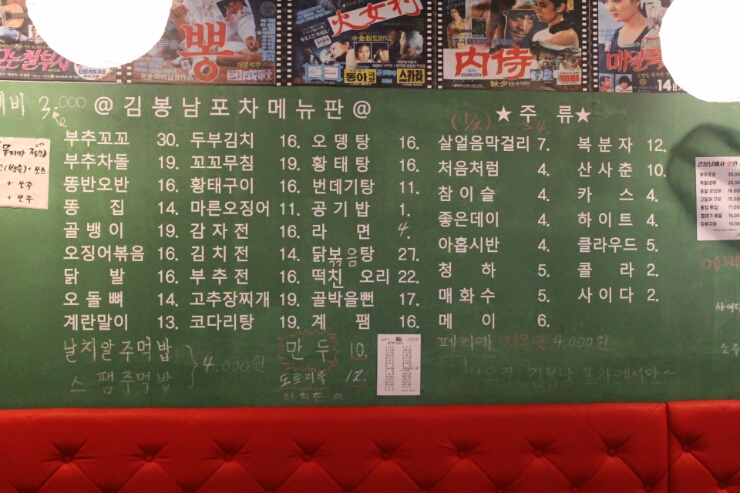 뽕
火女村
内侍
동아
스카라
14일
3.000 @ 김봉남포차메뉴판 @
★주 류★
부추꼬꼬 30. 두부김치 16. 오뎅탕 16. 살얼음막걸리 7. 복분자 12.
부추차돌 19. 꼬꼬무침 19. 황태탕 16. 처음처럼 4. 산사춘 10.
똥반오반 16. 황태구이 16. 번데기탕 11. 참이슬 4. 카스 4.
똥집 14. 마른오징어 11. 공기밥 1. 좋은데이 4. 하이트 4.
골뱅이 19. 감자전 16. 라면 4. 아홉시반 4. 클라우드 5.
오징어볶음 16. 김치전 14. 닭볶음탕 27. 청하 5. 콜라 2.
닭발 16. 부추전 16. 떡친오리 22. 매화수 5. 사이다 2.
오돌뼈 14. 고추장찌개 19. 골박을뻔 17. 메이 6.
계란말이 13. 코다리탕 19. 계팸 16.
날치알주먹밥
스팸주먹밥 } 4.000원
만두 10.
12.
4.000원
오직 김봉남 포차에서만~